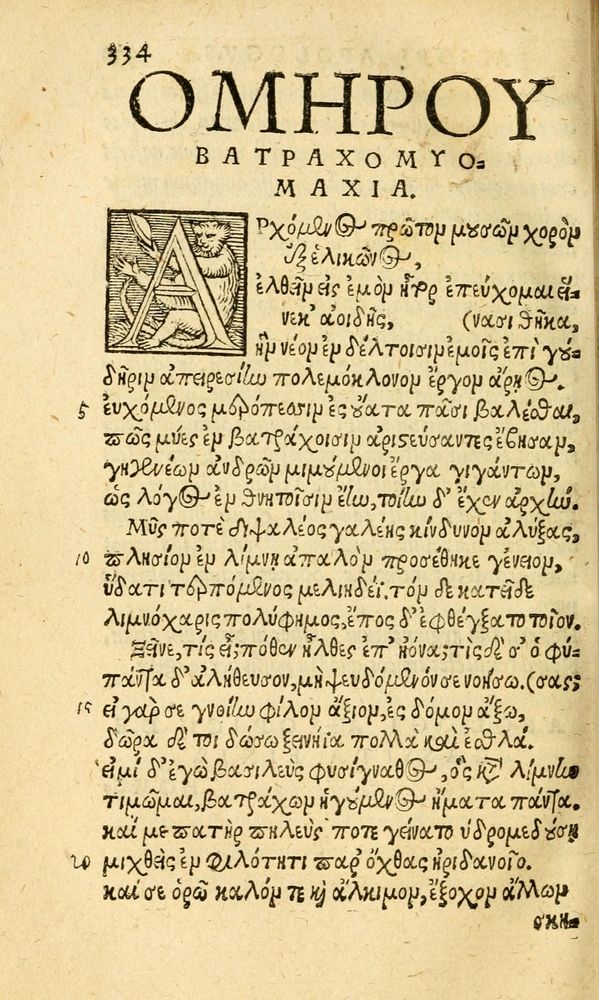 334
ΟΜΗΡΟΥ
ΒΑΤΡΑΧΟΜΥΟ-
ΜΑΧΙΑ.
Αρχόμενος πρῶτον μουσῶν χορὸν
ἐξ ἑλικῶνος,
ἐλθεῖν εἰς ἐμὸν ἦτορ ἐπεύχομαι εἵ-
νεκ' ἀοιδῆς, (νασι θῆκα,
ἣν νέον ἐν δέλτοισιν ἐμοῖς ἐπὶ γού-
δῆριν ἀπειρεσίην πολεμόκλονον ἔργον ἄρηος.
5 εὐχόμενος μερόπεσσιν ἐς οὔατα πᾶσι βαλέσθαι,
πῶς μύες ἐν βατράχοισιν ἀριστεύσαντες ἔβησαν,
γηγενέων ἀνδρῶν μιμούμενοι ἔργα γιγάντων,
ὡς λόγος ἐν θνητοῖσιν ἔην, τοίην δ' ἔχεν ἀρχήν.
Μῦς ποτὲ διψαλέος γαλέης κίνδυνον ἀλύξας,
10 πλησίον ἐν λίμνῃ ἁπαλὸν προσέθηκε γένειον,
ὕδατι τερπόμενος μελιηδέϊ. τόν δε κατεῖδε
λιμνόχαρις πολύφημος, ἔπος δ' ἐφθέγξατο τοῖον.
Ξεῖνε, τίς εἶ; πόθεν ἦλθες ἐπ' ἠόνα; τίς δέ σ' ὁ φύ-
πάντα δ' ἀλήθευσον, μὴ ψευδόμενόν σε νοήσω. (σας;
15 εἰ γάρ σε γνοίην φίλον ἄξιον, ἐς δόμον ἄξω,
δῶρα δέ τοι δώσω ξεινήϊα πολλὰ καὶ ἐσθλά.
εἰμί δ' ἐγὼ βασιλεὺς φυσίγναθος, ὃς κατὰ λίμνην
τιμῶμαι, βατράχων ἡγούμενος ἤματα πάντα.
καί με πατὴρ πηλεὺς ποτε γείνατο ὑδρομεδούσῃ
20 μιχθεὶς ἐν φιλότητι παρ' ὄχθας ἠριδανοῖο.
καί σε ὁρῶ καλόν τε καὶ ἄλκιμον, ἔξοχον ἄλλων
σκη-